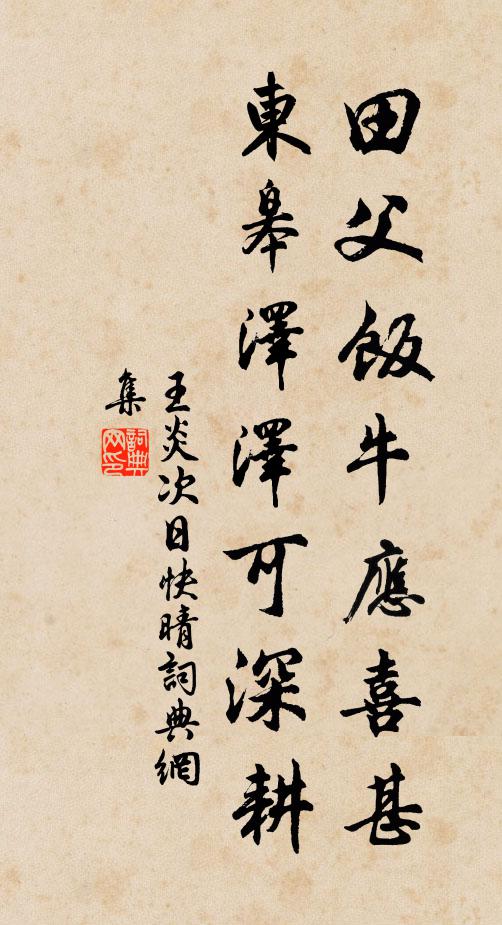 田父飯牛應喜甚
東皋澤澤可深耕
王炎次日快晴詞典網
集
詞典網印